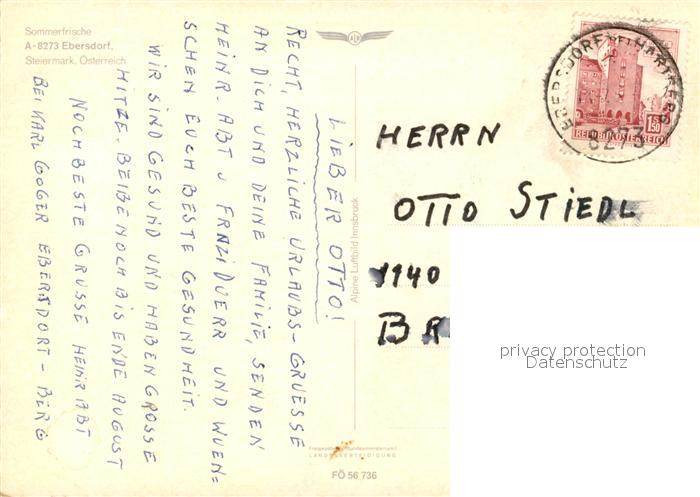 Sommerfrische
A-8273 Ebersdorf,
Steiermark, Österreich
LIEBER OTTO!
RECHT, HERZLICHE URLAUBS-GRUESSE
AN DICH UND DEINE FAMILIE, SENDEN
HEINR. ABT U FRAZI DUERR UND WUEN=
SCHEN EUCH BESTE GESUNDHEIT.
WIR SIND GESUND UND HABEN GROSSE
HITZE. BEIBE NOCH BIS ENDE AUGUST
NOCH BESTE GRÜSSE HEINR ABT
BEI KARL GOGER EBERSDORT-BERG
Alpine Luftbild Innsbruck
LANDESVERTEIDIGUNG
FÖ 56 736
EBERSDORF
8273
1.50
REPUBLIK ÖSTERREICH
HERRN
OTTO STIEDL
1140
privacy protection
Datenschutz